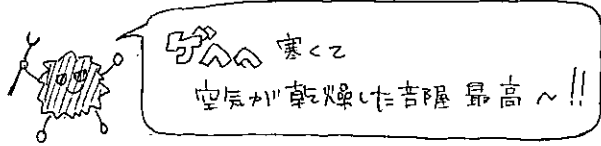 ゲヘヘ 寒くて
空気が乾燥した部屋 最高～!!